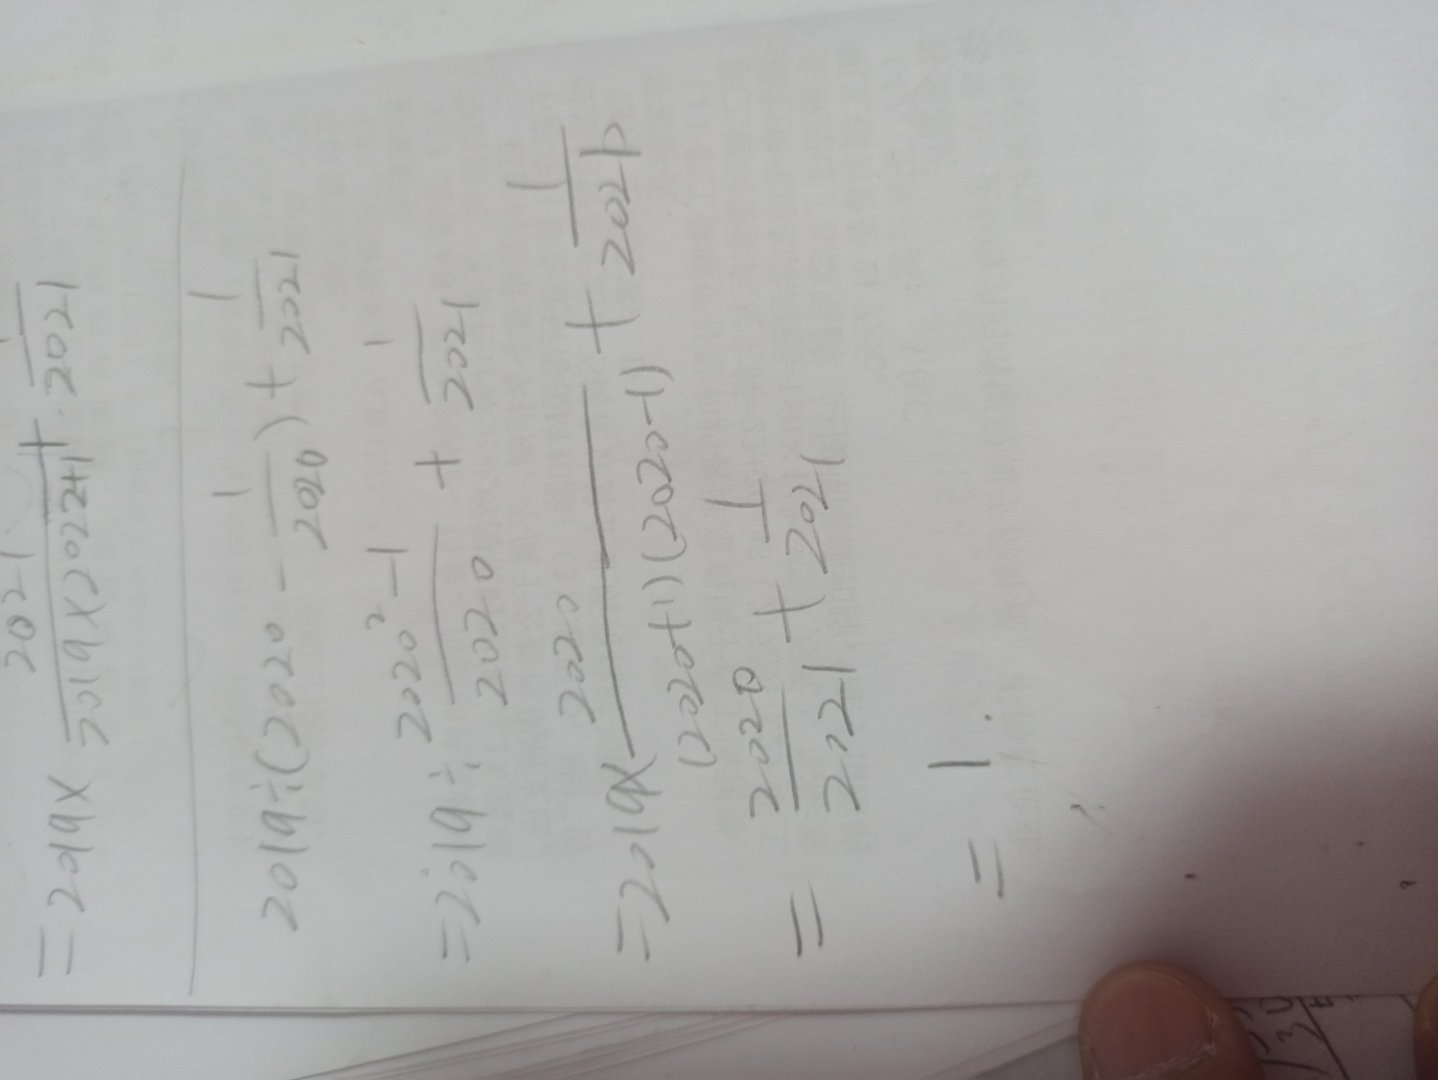 = 2019 × 2021/(2019×2022+1) + 1/2021
2019÷(2020 - 1/2020) + 1/2021
=2019÷ (2020²-1)/2020 + 1/2021
=2019× 2020/((2020+1)(2020-1)) + 1/2021
= 2020/2021 + 1/2021
= 1.